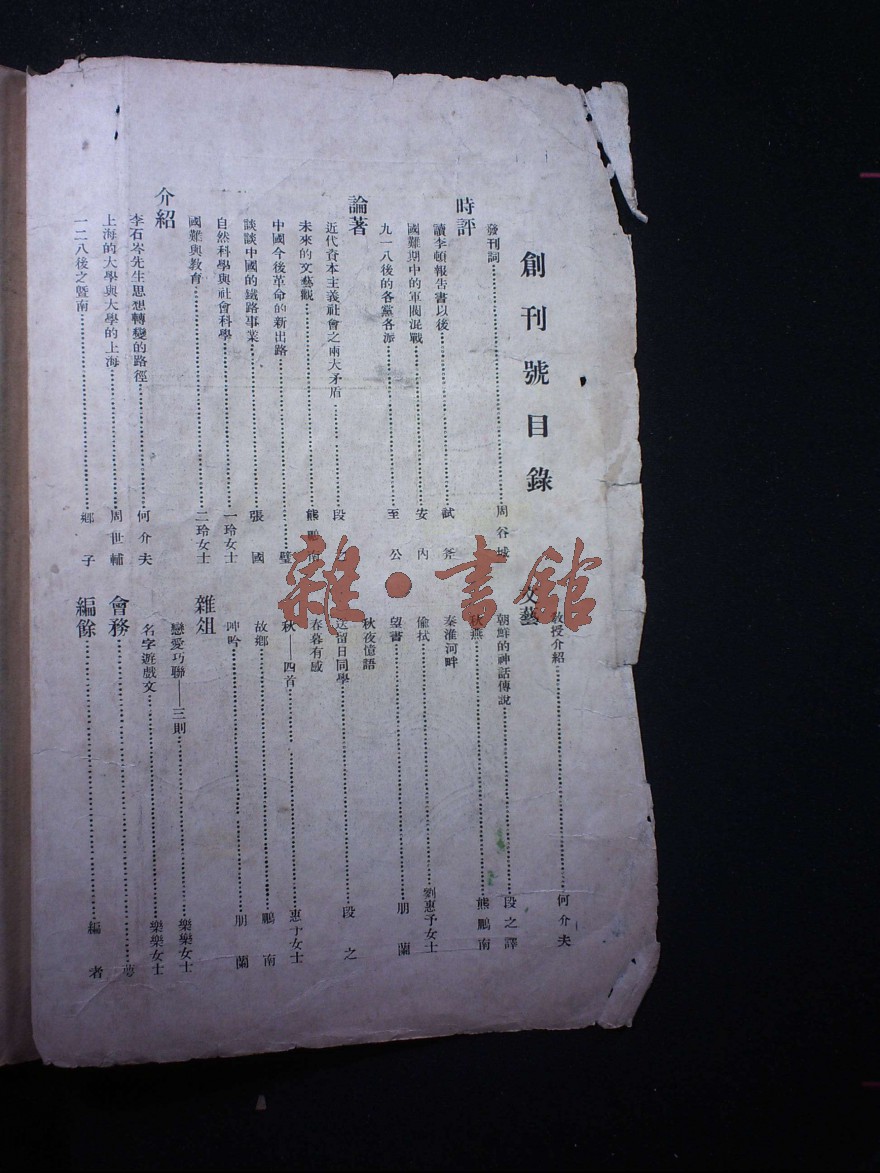 創刊號目錄
發刊詞 周谷城
時評
讀李頓報告書以後 試斧
國難期中的軍閥混戰 安內
九一八後的各黨各派 至公
論著
近代資本主義社會之兩大矛盾 段之
未來的文藝觀 熊鵬南
中國今後革命的新出路 璧
談談中國的鐵路事業 張國
自然科學與社會科學 一玲女士
國難與教育 二玲女士
介紹
李石岑先生思想轉變的路徑 何介夫
上海的大學與大學的上海 周世輔
一二八後之暨南 鄉子
教授介紹 何介夫
文藝
朝鮮的神話傳說 段之譯
秋燕 熊鵬南
秦淮河畔
偷拭 劉惠予女士
望書 朋蘭
秋夜憶語
送留日同學 段之
春暮有感
秋——四首 惠予女士
故鄉 鵬南
呻吟 朋蘭
雜俎
戀愛巧聯——三則 樂樂女士
名字遊戲文 樂樂女士
會務
編餘 編者
雜·書館